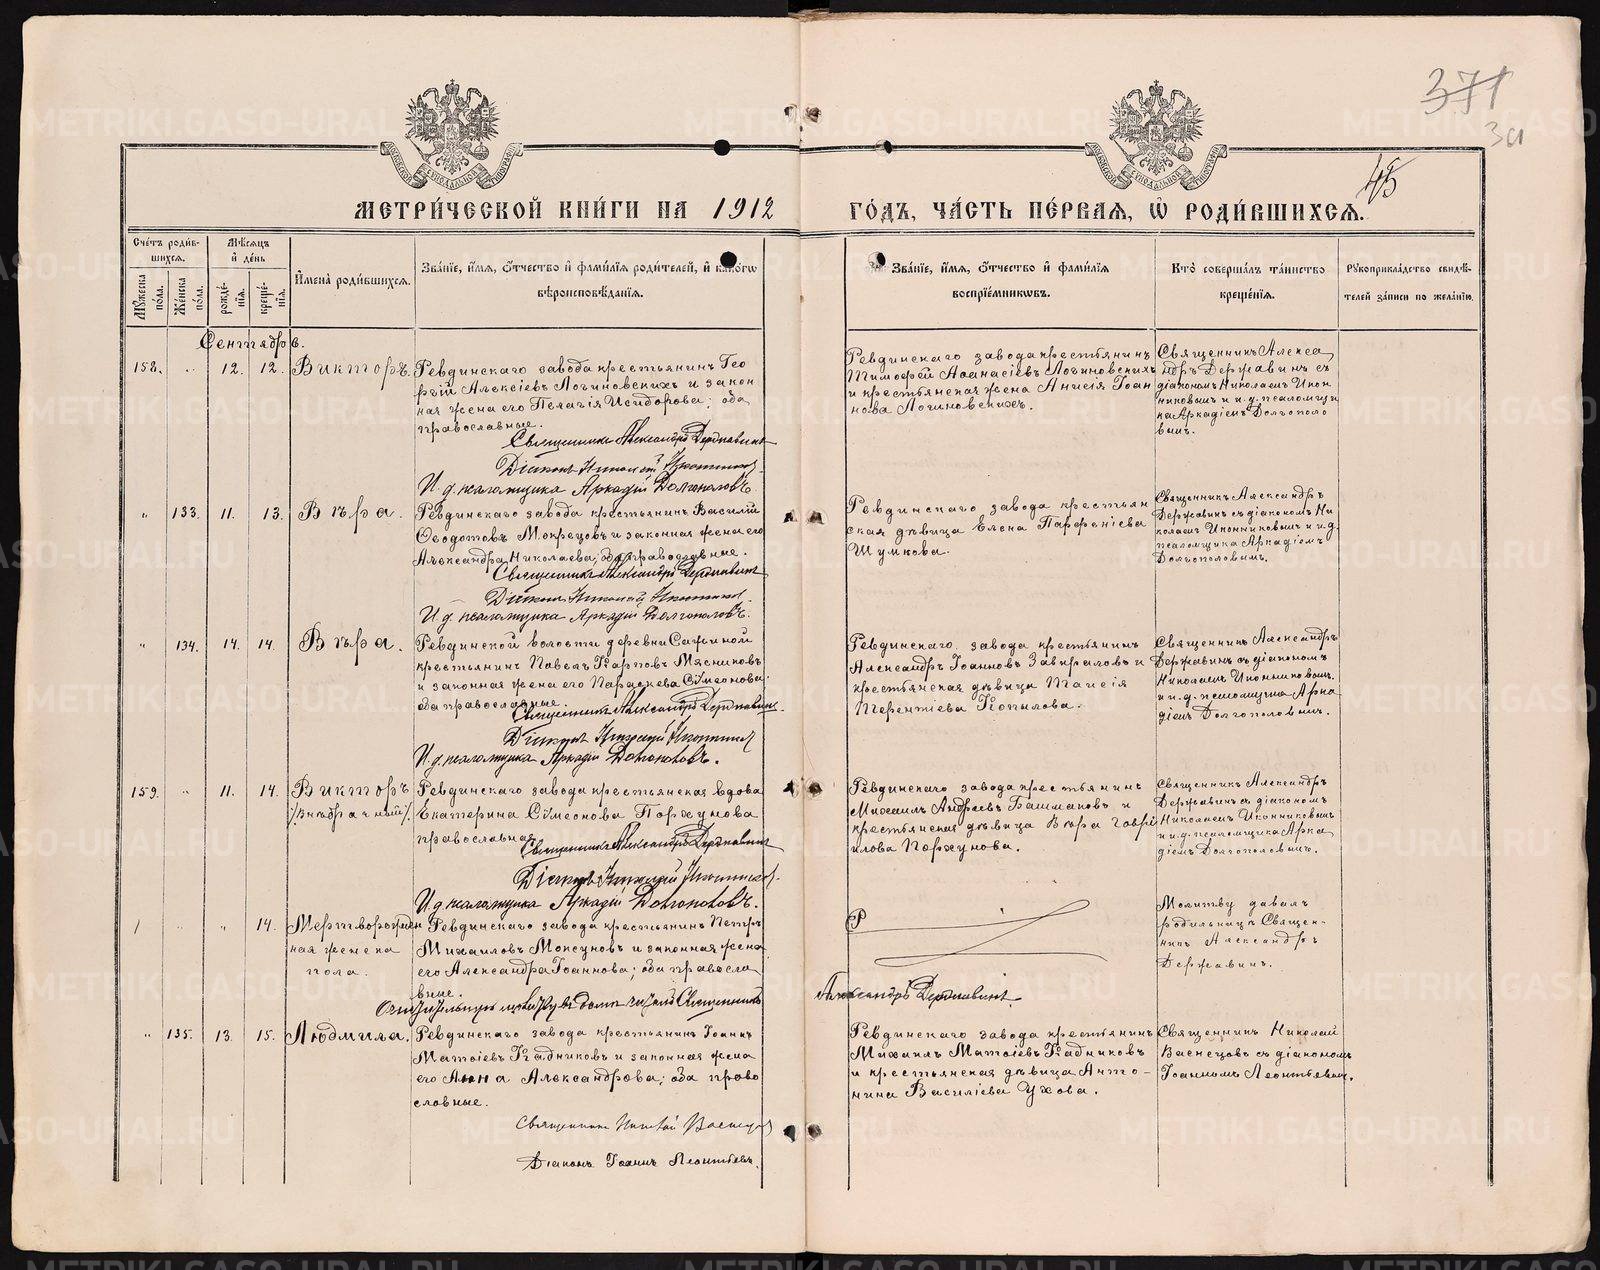 371
31
45
МОСКОВСКОЙ СѴНОДАЛЬНОЙ ТИПОГРАФІИ
МОСКОВСКОЙ СѴНОДАЛЬНОЙ ТИПОГРАФІИ
МЕТРИ́ЧЕСКОЙ КНИ́ГИ НА 1912 ГО́ДЪ, ЧА́СТЬ ПЕ́РВАЯ, Ѡ РОДИ́ВШИХСЯ.
Сче́тъ роди́вшихся.
Му́жеска по́ла.
Же́нска по́ла.
Мѣ́сяцъ и де́нь
рожде́нія.
креще́нія.
Имена̀ роди́вшихся.
Зва́ніе, и́мя, о́тчество и фами́лія роди́телей, и како́гѡ
вѣроисповѣ́данія.
Зва́ніе, и́мя, о́тчество и фами́лія
воспріе́мникѡвъ.
Кто̀ соверша́лъ та́инство
креще́нія.
Рукоприкла́дство свидѣ́-
телей за́писи по жела́нію.
Сентябрь.
158. " 12. 12. Викторъ.
Ревдинскаго завода крестьянинъ Гео
ргій Алексіевъ Логиновскихъ и закон
ная жена его Пелагія Исидорова; оба
православные.
Священникъ Александръ Державинъ
Діаконъ Николай Иконниковъ
И. д. псаломщика Аркадій Долгополовъ
Ревдинскаго завода крестьянинъ
Тимофей Аѳанасіевъ Логиновскихъ
и крестьянская жена Анисія Іоан
нова Логиновскихъ.
Священникъ Алекса
ндръ Державинъ съ
діакономъ Николаемъ Икон
никовымъ и и.д. псаломщи
ка Аркадіемъ Долгополо
вымъ.
" 133. 11. 13. Вѣра.
Ревдинскаго завода крестьянинъ Василій
Ѳеодотовъ Мокрецовъ и законная жена его
Александра Николаева; оба православные.
Священникъ Александръ Державинъ
Діаконъ Николай Иконниковъ
И. д. псаломщика Аркадій Долгополовъ.
Ревдинскаго завода крестьян
ская дѣвица Елена Парфеніева
Шумкова.
Священникъ Александръ
Державинъ съ діакономъ Ни
колаемъ Иконниковымъ и и.д.
псаломщика Аркадіемъ
Долгополовымъ.
" 134. 14. 14. Вѣра.
Ревдинской волости деревни Сажиной
крестьянинъ Павелъ Карповъ Мясниковъ
и законная жена его Параскева Сѵмеонова;
оба православные
Священникъ Александръ Державинъ
Діаконъ Николай Иконниковъ
И. д. псаломщика Аркадій Долгополовъ.
Ревдинскаго завода крестьянинъ
Александръ Іоанновъ Завираловъ и
крестьянская дѣвица Таисія
Терентіева Копылова.
Священникъ Александръ
Державинъ съ діакономъ
Николаемъ Иконниковымъ
и и.д. псаломщика Арка
діемъ Долгополовымъ.
159. " 11. 14. Викторъ
/Внѣбрачный/.
Ревдинскаго завода крестьянская вдова
Екатерина Сѵмеонова Поржунова
православная.
Священникъ Александръ Державинъ
Діаконъ Николай Иконниковъ
И. д. псаломщика Аркадій Долгополовъ.
Ревдинскаго завода крестьянинъ
Михаилъ Андреевъ Башмаковъ и
крестьянская дѣвица Вѣра Гаврі
илова Поржунова.
Священникъ Александръ
Державинъ съ діакономъ
Николаемъ Иконниковымъ
и и.д. псаломщика Арка
діемъ Долгополовымъ.
/ " " 14. Мерторожден
ная женска
пола.
Ревдинскаго завода крестьянинъ Петръ
Михаиловъ Мокеуновъ и законная жена
его Александра Іоаннова; оба правосла
вные.
Очистительную молитву въ дому читалъ Священникъ
Александръ Державинъ
Молитву давалъ
родильницѣ Священ-
никъ Александръ
Державинъ.
" 135. 13. 15. Людмила.
Ревдинскаго завода крестьянинъ Іоаннъ
Матѳіевъ Кадниковъ и законная жена
его Анна Александрова; оба право
славные.
Священникъ Николай Васнецовъ
Діаконъ Іоаннъ Леонтьевъ.
Ревдинскаго завода крестьянинъ
Михаилъ Матѳіевъ Кадниковъ
и крестьянская дѣвица Анто-
нина Василіева Ухова.
Священникъ Николай
Васнецовъ съ діакономъ
Іоанномъ Леонтьевымъ.
METRIKI.GASO-URAL.RU